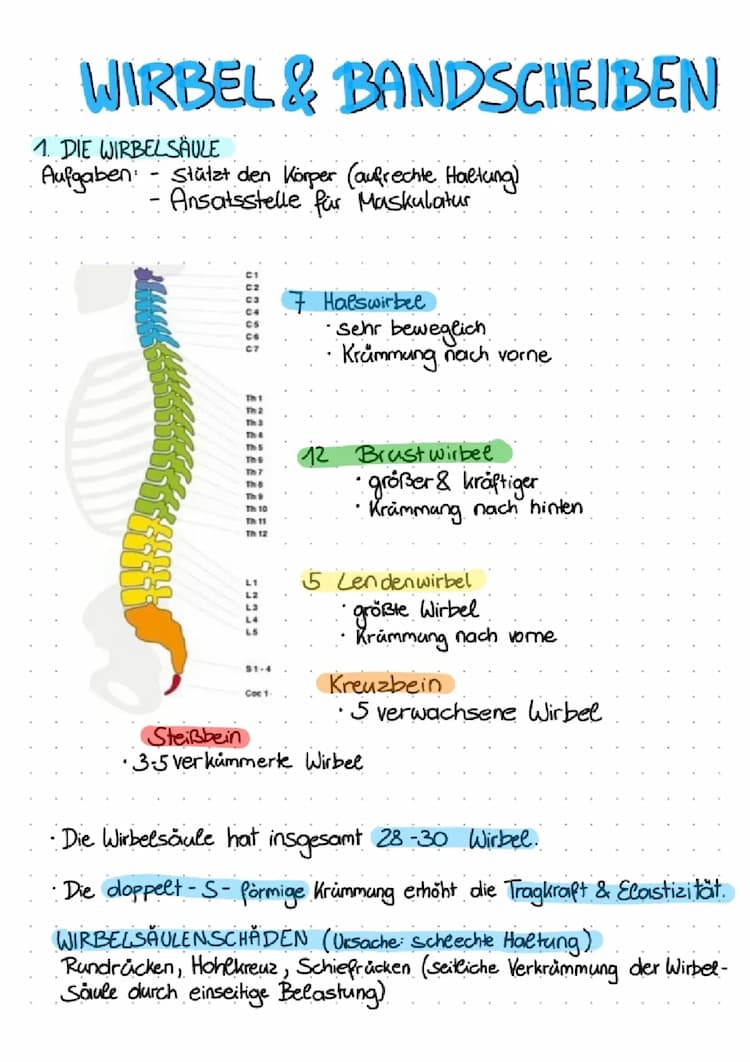 WIRBEL & BANDSCHEIBEN
1. DIE WIRBELSÄULE
Aufgaben: - stützt den Körper (aufrechte Haltung)
- Ansatsstelle für Muskulatur
C1
C2
C3
C4
C5
C6
C7
7 Halswirbel
· sehr beweglich
· Krümmung nach vorne
Th 1
Th 2
Th 3
Th 4
Th 5
Th 6
Th 7
Th 8
Th 9
Th 10
Th 11
Th 12
12 Brustwirbel
· größer & kräftiger
· Krümmung nach hinten
L1
L2
L3
L4
L5
5 Lendenwirbel
· größte Wirbel
· Krümmung nach vorne
S1-4
Coc 1
Kreuzbein
· 5 verwachsene Wirbel
Steißbein
· 3-5 verkümmerte Wirbel
· Die Wirbelsäule hat insgesamt 28-30 Wirbel.
· Die doppelt-S-förmige Krümmung erhöht die Tragkraft & Elastizität.
WIRBELSÄULENSCHÄDEN (Ursache: schlechte Haltung)
Rundrücken, Hohlkreuz, Schiefrücken (seitliche Verkrümmung der Wirbel-
säule durch einseitige Belastung)